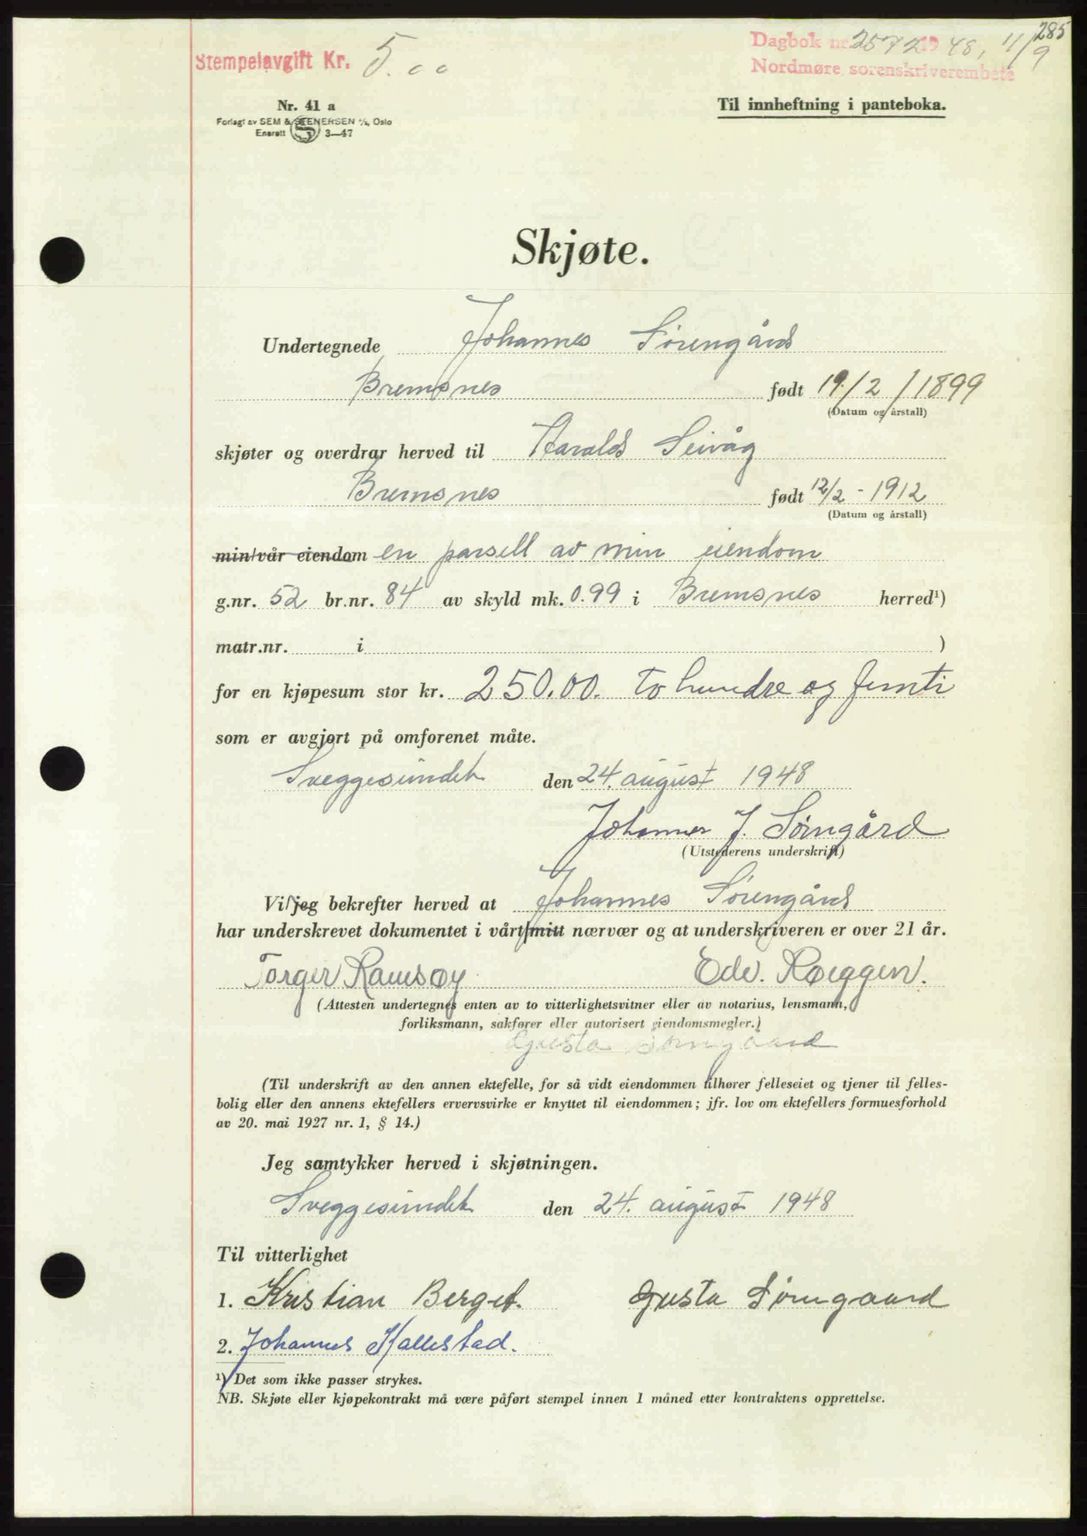 285
Stempelavgift Kr. 5.00
Dagbok nr. 2572 1948, 11/9
Nordmøre sorenskriverembete
Nr. 41 a
Forlagt av SEM & STENERSEN A/S, Oslo
Enerett S 3—47
Til innheftning i panteboka.
Skjøte.
Undertegnede Johannes Sørengård
Bremsnes født 19/2 1899
(Datum og årstall)
skjøter og overdrar herved til Harald Seivåg
Bremsnes født 12/2 - 1912
(Datum og årstall)
min/vår eiendom en parsell av min eiendom
g.nr. 52 br.nr. 84 av skyld mk. 0.99 i Bremsnes herred¹)
matr.nr. i )
for en kjøpesum stor kr. 250.00. to hundre og femti
som er avgjort på omforenet måte.
Sveggesundet den 24. august 1948
Johannes J. Sørngård
(Utstederens underskrift)
Vi/jeg bekrefter herved at Johannes Sørengård
har underskrevet dokumentet i vårt/mitt nærvær og at underskriveren er over 21 år.
Torger Ramsøy Edv. Røeggen.
(Attesten undertegnes enten av to vitterlighetsvitner eller av notarius, lensmann,
forliksmann, sakfører eller autorisert eiendomsmegler.)
Gusta Sørngaard
(Til underskrift av den annen ektefelle, for så vidt eiendommen tilhører felleseiet og tjener til felles-
bolig eller den annens ektefellers ervervsvirke er knyttet til eiendommen; jfr. lov om ektefellers formuesforhold
av 20. mai 1927 nr. 1, § 14.)
Jeg samtykker herved i skjøtningen.
Sveggesundet den 24. august 1948
Til vitterlighet
1. Kristian Berget. Gusta Sørngaard
2. Johannes Kallestad.
¹) Det som ikke passer strykes.
NB. Skjøte eller kjøpekontrakt må være påført stempel innen 1 måned etter kontraktens opprettelse.